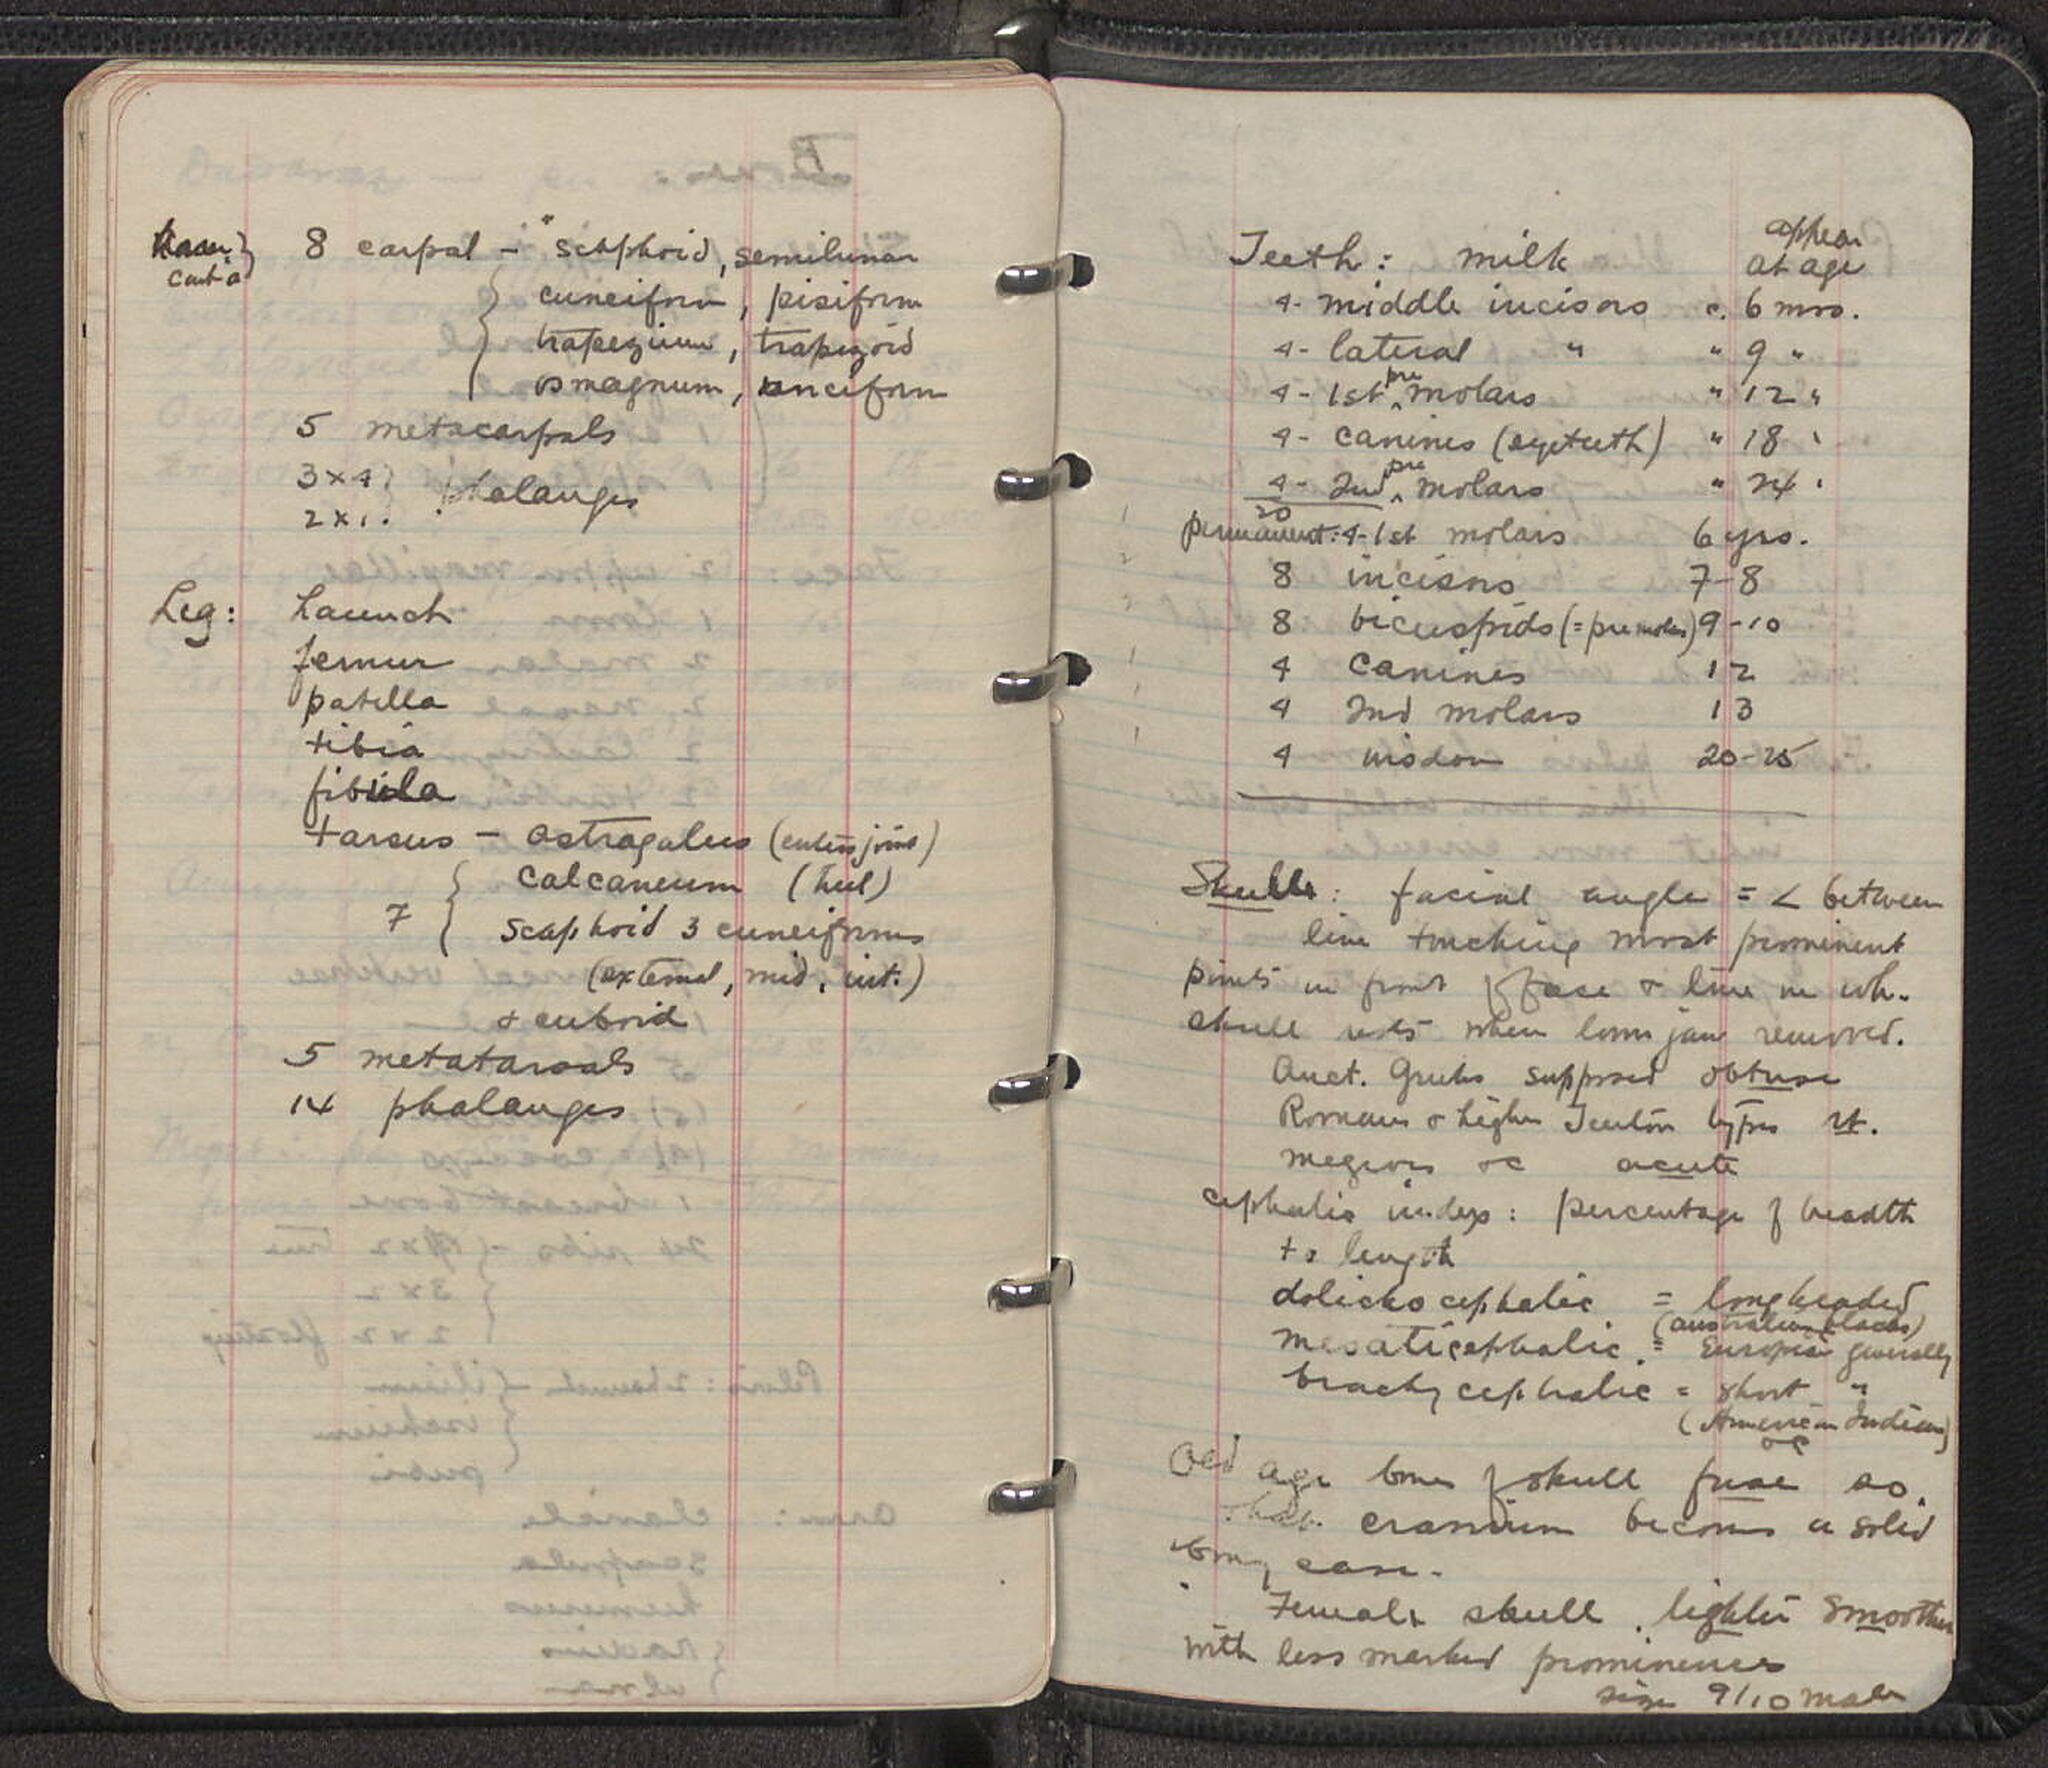 8 carpal - scaphoid, semilunar
cuneiform, pisiform
trapezium, trapezoid
os magnum, unciform
5 metacarpals
3x4
2x1. phalanges
Leg: haunch
femur
patella
tibia
fibula
tarsus - astragalus (enters joint)
calcaneum (heel)
7 scaphoid 3 cuneiforms
(external, mid, int.)
& cuboid
5 metatarsals
14 phalanges
appear
Teeth: milk at age
4- middle incisors c. 6 mos.
4- lateral " " 9 "
4- 1st premolars " 12 "
4- canines (eyeteeth) " 18 "
4- 2nd premolars " 24 "
20
permanent: 4-1st molars 6 yrs.
8 incisors 7-8
8 bicuspids (= premolars) 9-10
4 canines 12
4 2nd molars 13
4 wisdom 20-25
Skulls: facial angle = < between
line touching most prominent
points in front of face & line in wh.
skull rests when lower jaw removed.
Anct. Greeks supposed obtuse
Romans & higher Teuton types rt.
negroes &c acute
cephalic index: percentage of breadth
to length
dolichocephalic = longheaded
(Australian blacks)
mesaticephalic = European generally
brachycephalic = short "
(American Indians)
&c
Old age bones of skull fuse so
that cranium becomes a solid
bony case.
Female skull lighter smoother
with less marked prominences
size 9/10 male